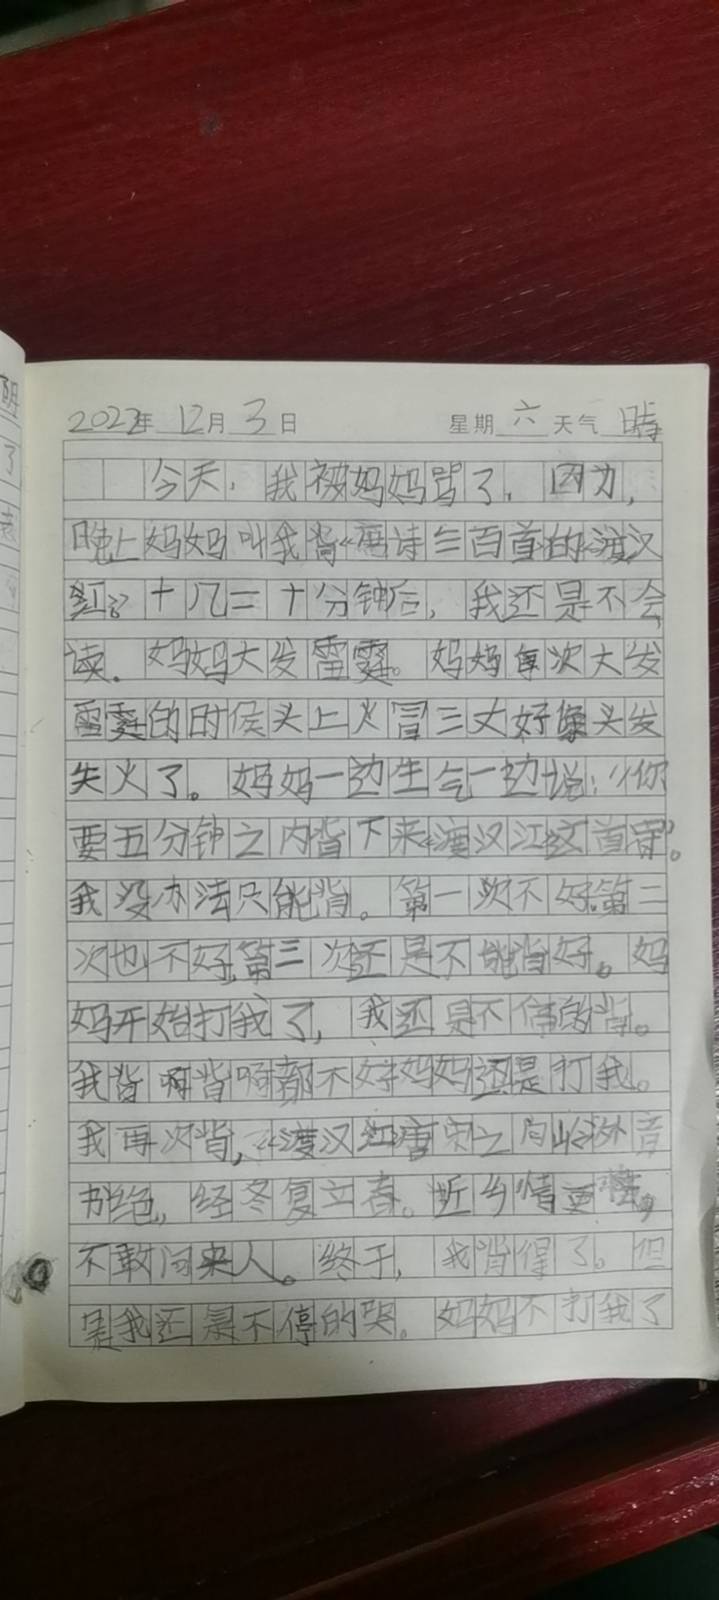 2022年 12月 3日 星期 六 天气 晴
今天，我被妈妈骂了，因为，
晚上妈妈叫我背《唐诗三百首》的《渡汉
江》十几二十分钟后，我还是不会
读．妈妈大发雷霆。妈妈每次大发
雷霆的时侯头上火冒三丈好像头发
失火了。妈妈一边生气一边说：“你
要五分钟之内背下来《渡汉江》这首
我没办法只能背。第一次不好.第二
次也不好,第三次还是不能背好。妈
妈开始打我了，我还是不停的背。
我背啊背啊都不好妈妈还是打我。
我再次背，《渡汉江》唐宋之问岭外音
书绝，经冬复立春。近乡情更怯，
不敢问来人。终于，我背得了。但
是我还是不停的哭。妈妈不打我了